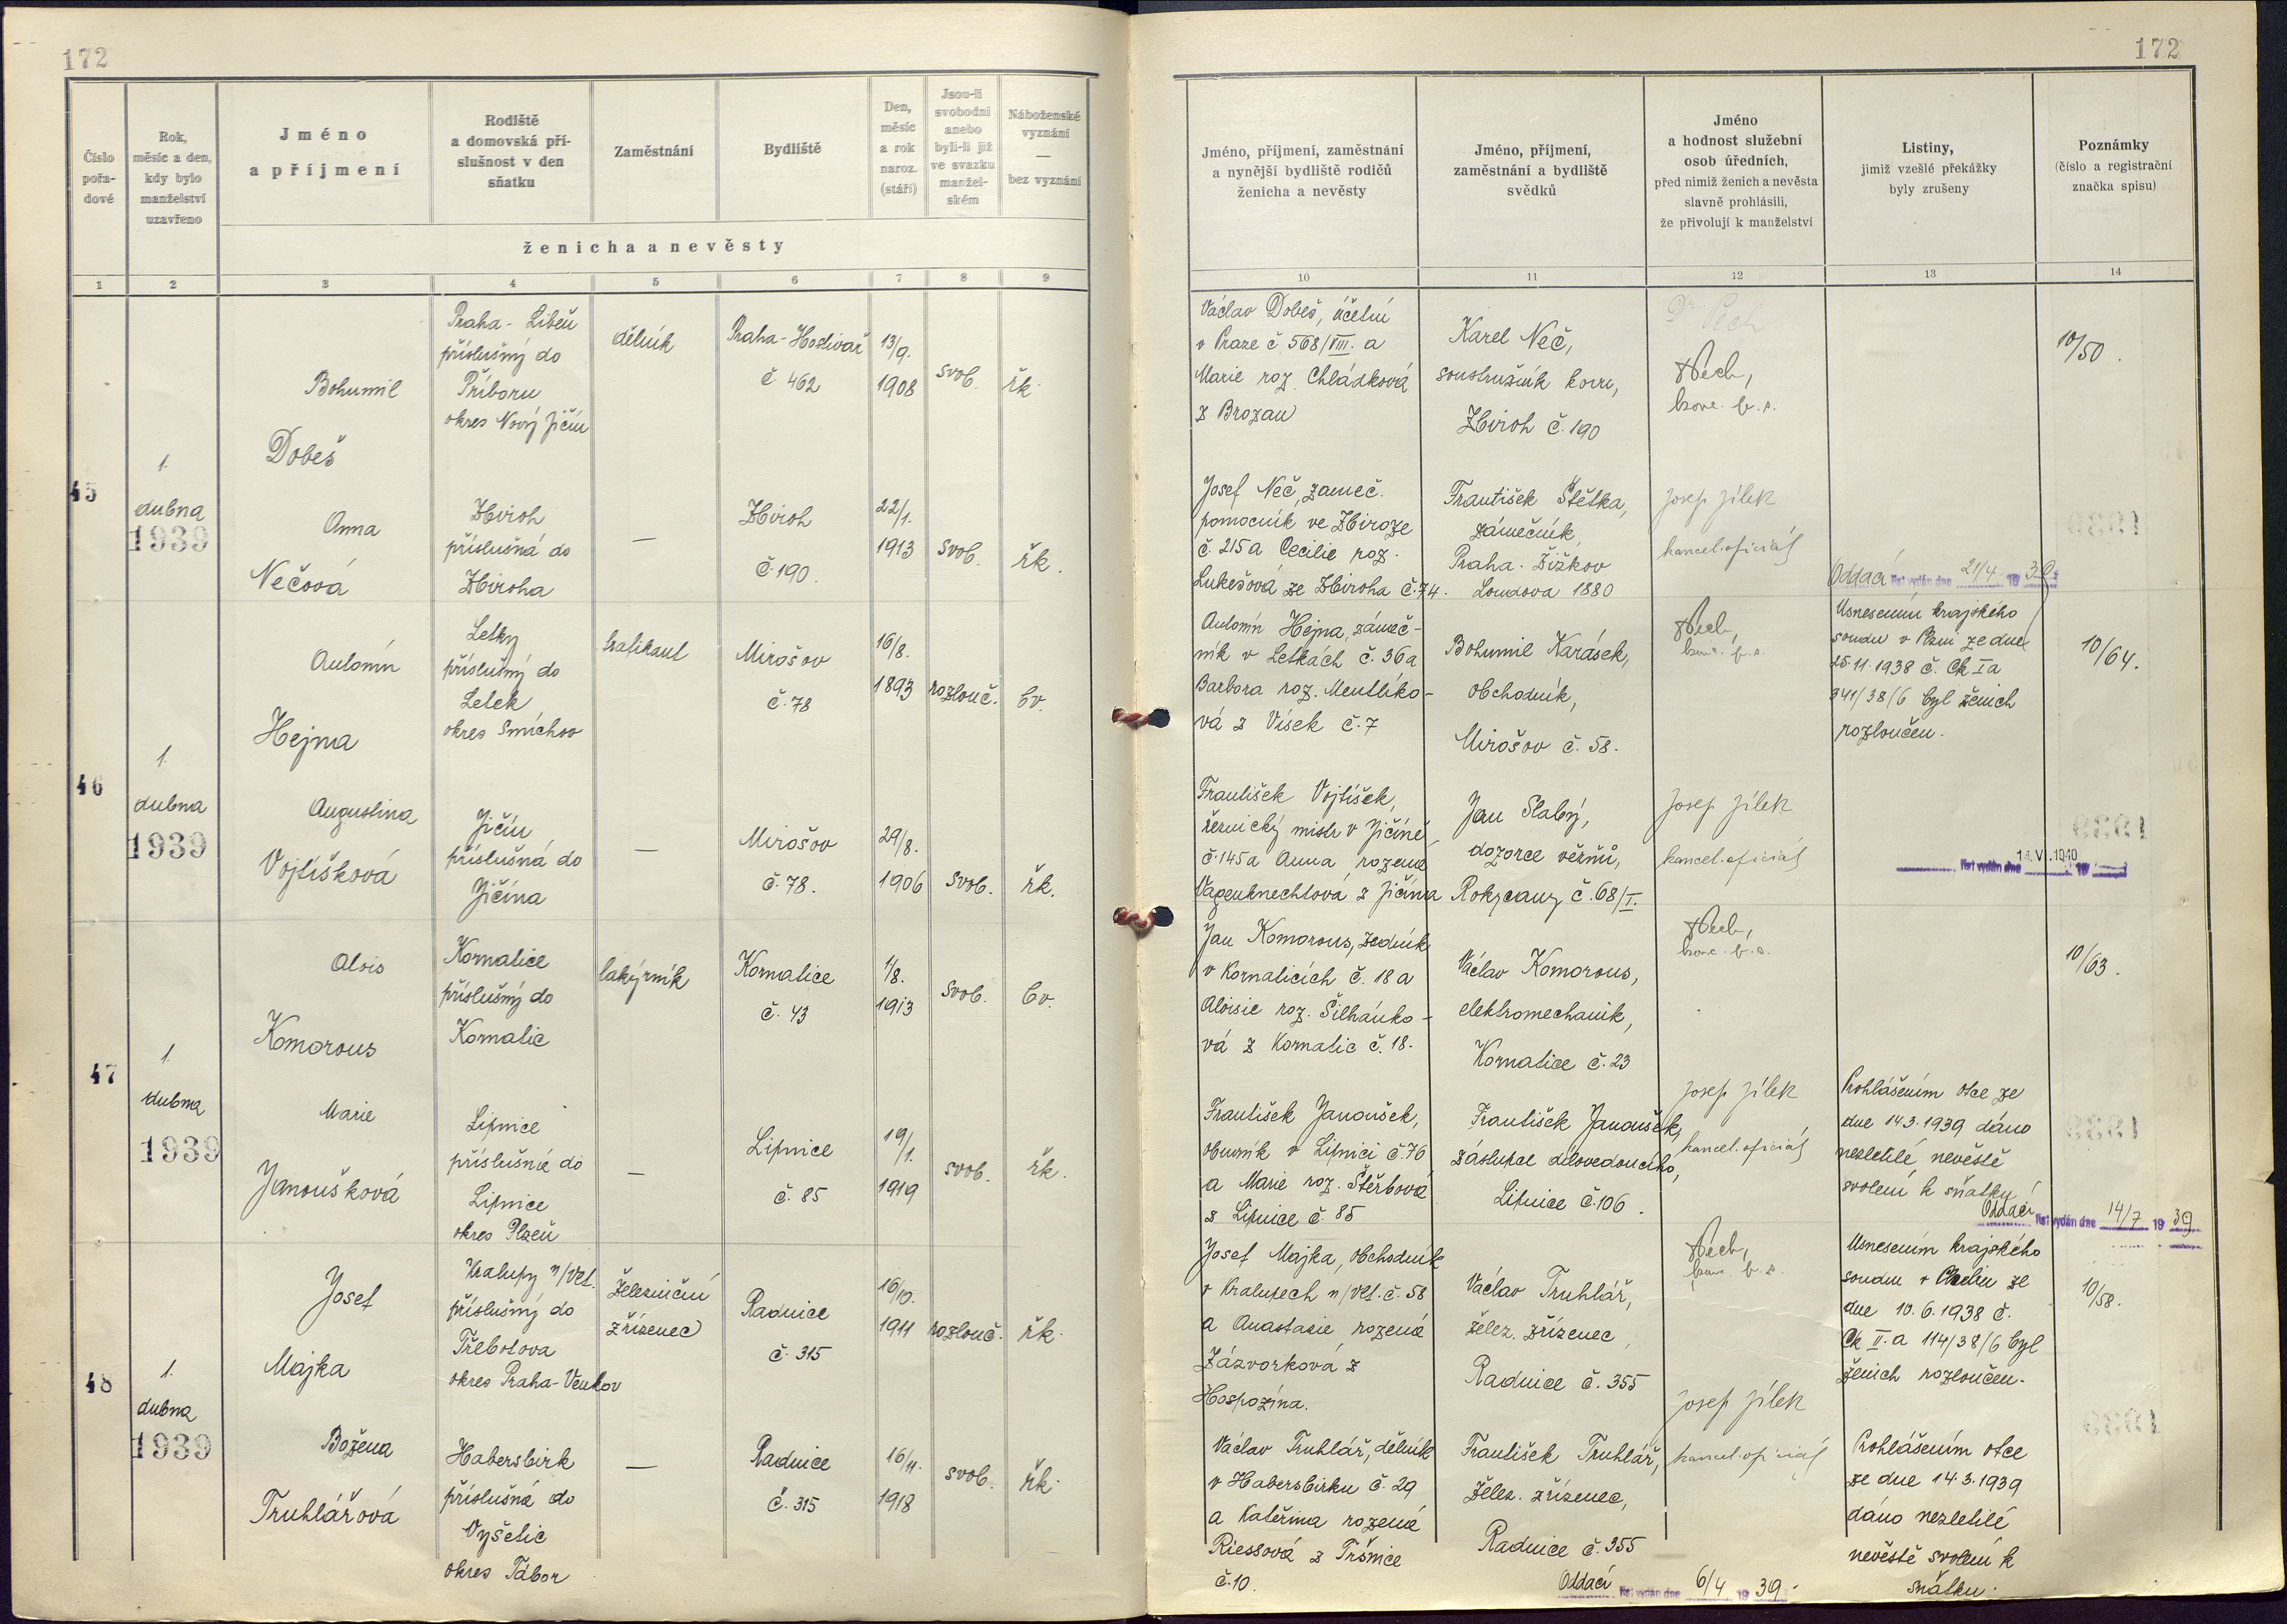 172
172
Číslo pořadové
Rok, měsíc a den, kdy bylo manželství uzavřeno
Jméno a příjmení
Rodiště a domovská příslušnost v den sňatku
Zaměstnání
Bydliště
Den, měsíc a rok naroz. (stáří)
Jsou-li svobodni anebo byli-li již ve svazku manželském
Náboženské vyznání — bez vyznání
ženicha a nevěsty
1 2 3 4 5 6 7 8 9
Jméno, příjmení, zaměstnání a nynější bydliště rodičů ženicha a nevěsty
Jméno, příjmení, zaměstnání a bydliště svědků
Jméno a hodnost služební osob úředních, před nimiž ženich a nevěsta slavně prohlásili, že přivolují k manželství
Listiny, jimiž vzešlé překážky byly zrušeny
Poznámky (číslo a registrační značka spisu)
10 11 12 13 14
45
1.
dubna
1939
Bohumil
Dobeš
Praha - Libeň
příslušný do
Příboru
okres Nový Jičín
dělník
Praha - Hostivař
č 462
13/9.
1908
svob.
řk.
Václav Dobeš, účetní
v Praze č 568/VIII. a
Marie roz. Chládková
z Brozan
Karel Neč,
soustružník kovu,
Zbiroh č. 190
Dr Pech
Pech,
10/50.
Anna
Nečová
Zbiroh
příslušná do
Zbiroha
—
Zbiroh
č. 190.
22/1.
1913
svob.
řk.
Josef Neč, zámeč.
pomocník ve Zbiroze
č. 215 a Cecilie roz.
Lukešová ze Zbiroha č. 74.
František Štětka,
zámečník,
Praha - Žižkov
Loudova 1880
Josef Jílek
kancel. oficiál
Oddací list vydán dne 21/4 1939
46
1.
dubna
1939
Antonín
Hejma
Letky
příslušný do
Letek
okres Smíchov
trafikant
Mirošov
č. 78
16/8.
1893
rozlouč.
bv.
Antonín Hejma, zámeč-
ník v Letkách č. 36 a
Barbora roz. Mentlíko-
vá z Vísek č. 7
Bohumil Karásek,
obchodník,
Mirošov č. 58.
Pech,
Usnesením krajského
soudu v Plzni ze dne
25.11.1938 č. Ck I a
341/38/6 byl ženich
rozloučen.
10/64.
Augustina
Vojtíšková
Jičín
příslušná do
Jičína
—
Mirošov
č. 78.
29/8.
1906
svob.
řk.
František Vojtíšek,
řeznický mistr v Jičíně
č. 145 a Anna rozená
Vagenknechtová z Jičína
Jan Slabý,
dozorce vězňů,
Rokycany č. 68/I.
Josef Jílek
kancel. oficiál
list vydán dne 14.V.1940 19
47
1.
dubna
1939
Alois
Komorous
Kornatice
příslušný do
Kornatic
lakýrník
Kornatice
č. 43
1/8.
1913
svob.
bv.
Jan Komorous, zedník
v Kornaticích č. 18 a
Aloisie roz. Šilhánko-
vá z Kornatic č. 18.
Václav Komorous,
elektromechanik,
Kornatice č. 23
Pech,
10/63.
Marie
Janoušková
Lipnice
příslušná do
Lipnice
okres Plzeň
—
Lipnice
č. 85
19/1.
1919
svob.
řk.
František Janoušek,
obuvník v Lipnici č. 76
a Marie roz. Štěrbová
z Lipnice č. 85
František Janoušek,
zástupce dílovedoucího,
Lipnice č. 106.
Josef Jílek
kancel. oficiál
Prohlášením otce ze
dne 14.3.1939 dáno
nezletilé nevěstě
svolení k sňatku
Oddací list vydán dne 14/7 1939
48
1.
dubna
1939
Josef
Majka
Kralupy n/Vlt.
příslušný do
Třebotova
okres Praha - Venkov
železniční
zřízenec
Radnice
č. 315
16/10.
1911
rozlouč.
řk.
Josef Majka, obchodník
v Kralupech n/Vlt. č. 58
a Anastasie rozená
Zázvorková z
Hospozína.
Václav Truhlář,
želez. zřízenec,
Radnice č. 355
Pech,
Usnesením krajského
soudu v Chebu ze
dne 10.6.1938 č.
Ck II. a 114/38/6 byl
ženich rozloučen.
10/58.
Božena
Truhlářová
Habersbirk
příslušná do
Vyšetic
okres Tábor
—
Radnice
č. 315
16/11.
1918
svob.
řk.
Václav Truhlář, dělník
v Habersbirku č. 29
a Kateřina rozená
Riessová z Tršnice
č. 10.
František Truhlář,
želez. zřízenec,
Radnice č. 355
Josef Jílek
kancel. oficiál
Prohlášením otce
ze dne 14.3.1939
dáno nezletilé
nevěstě svolení k
sňatku.
Oddací list vydán dne 6/4 1939.